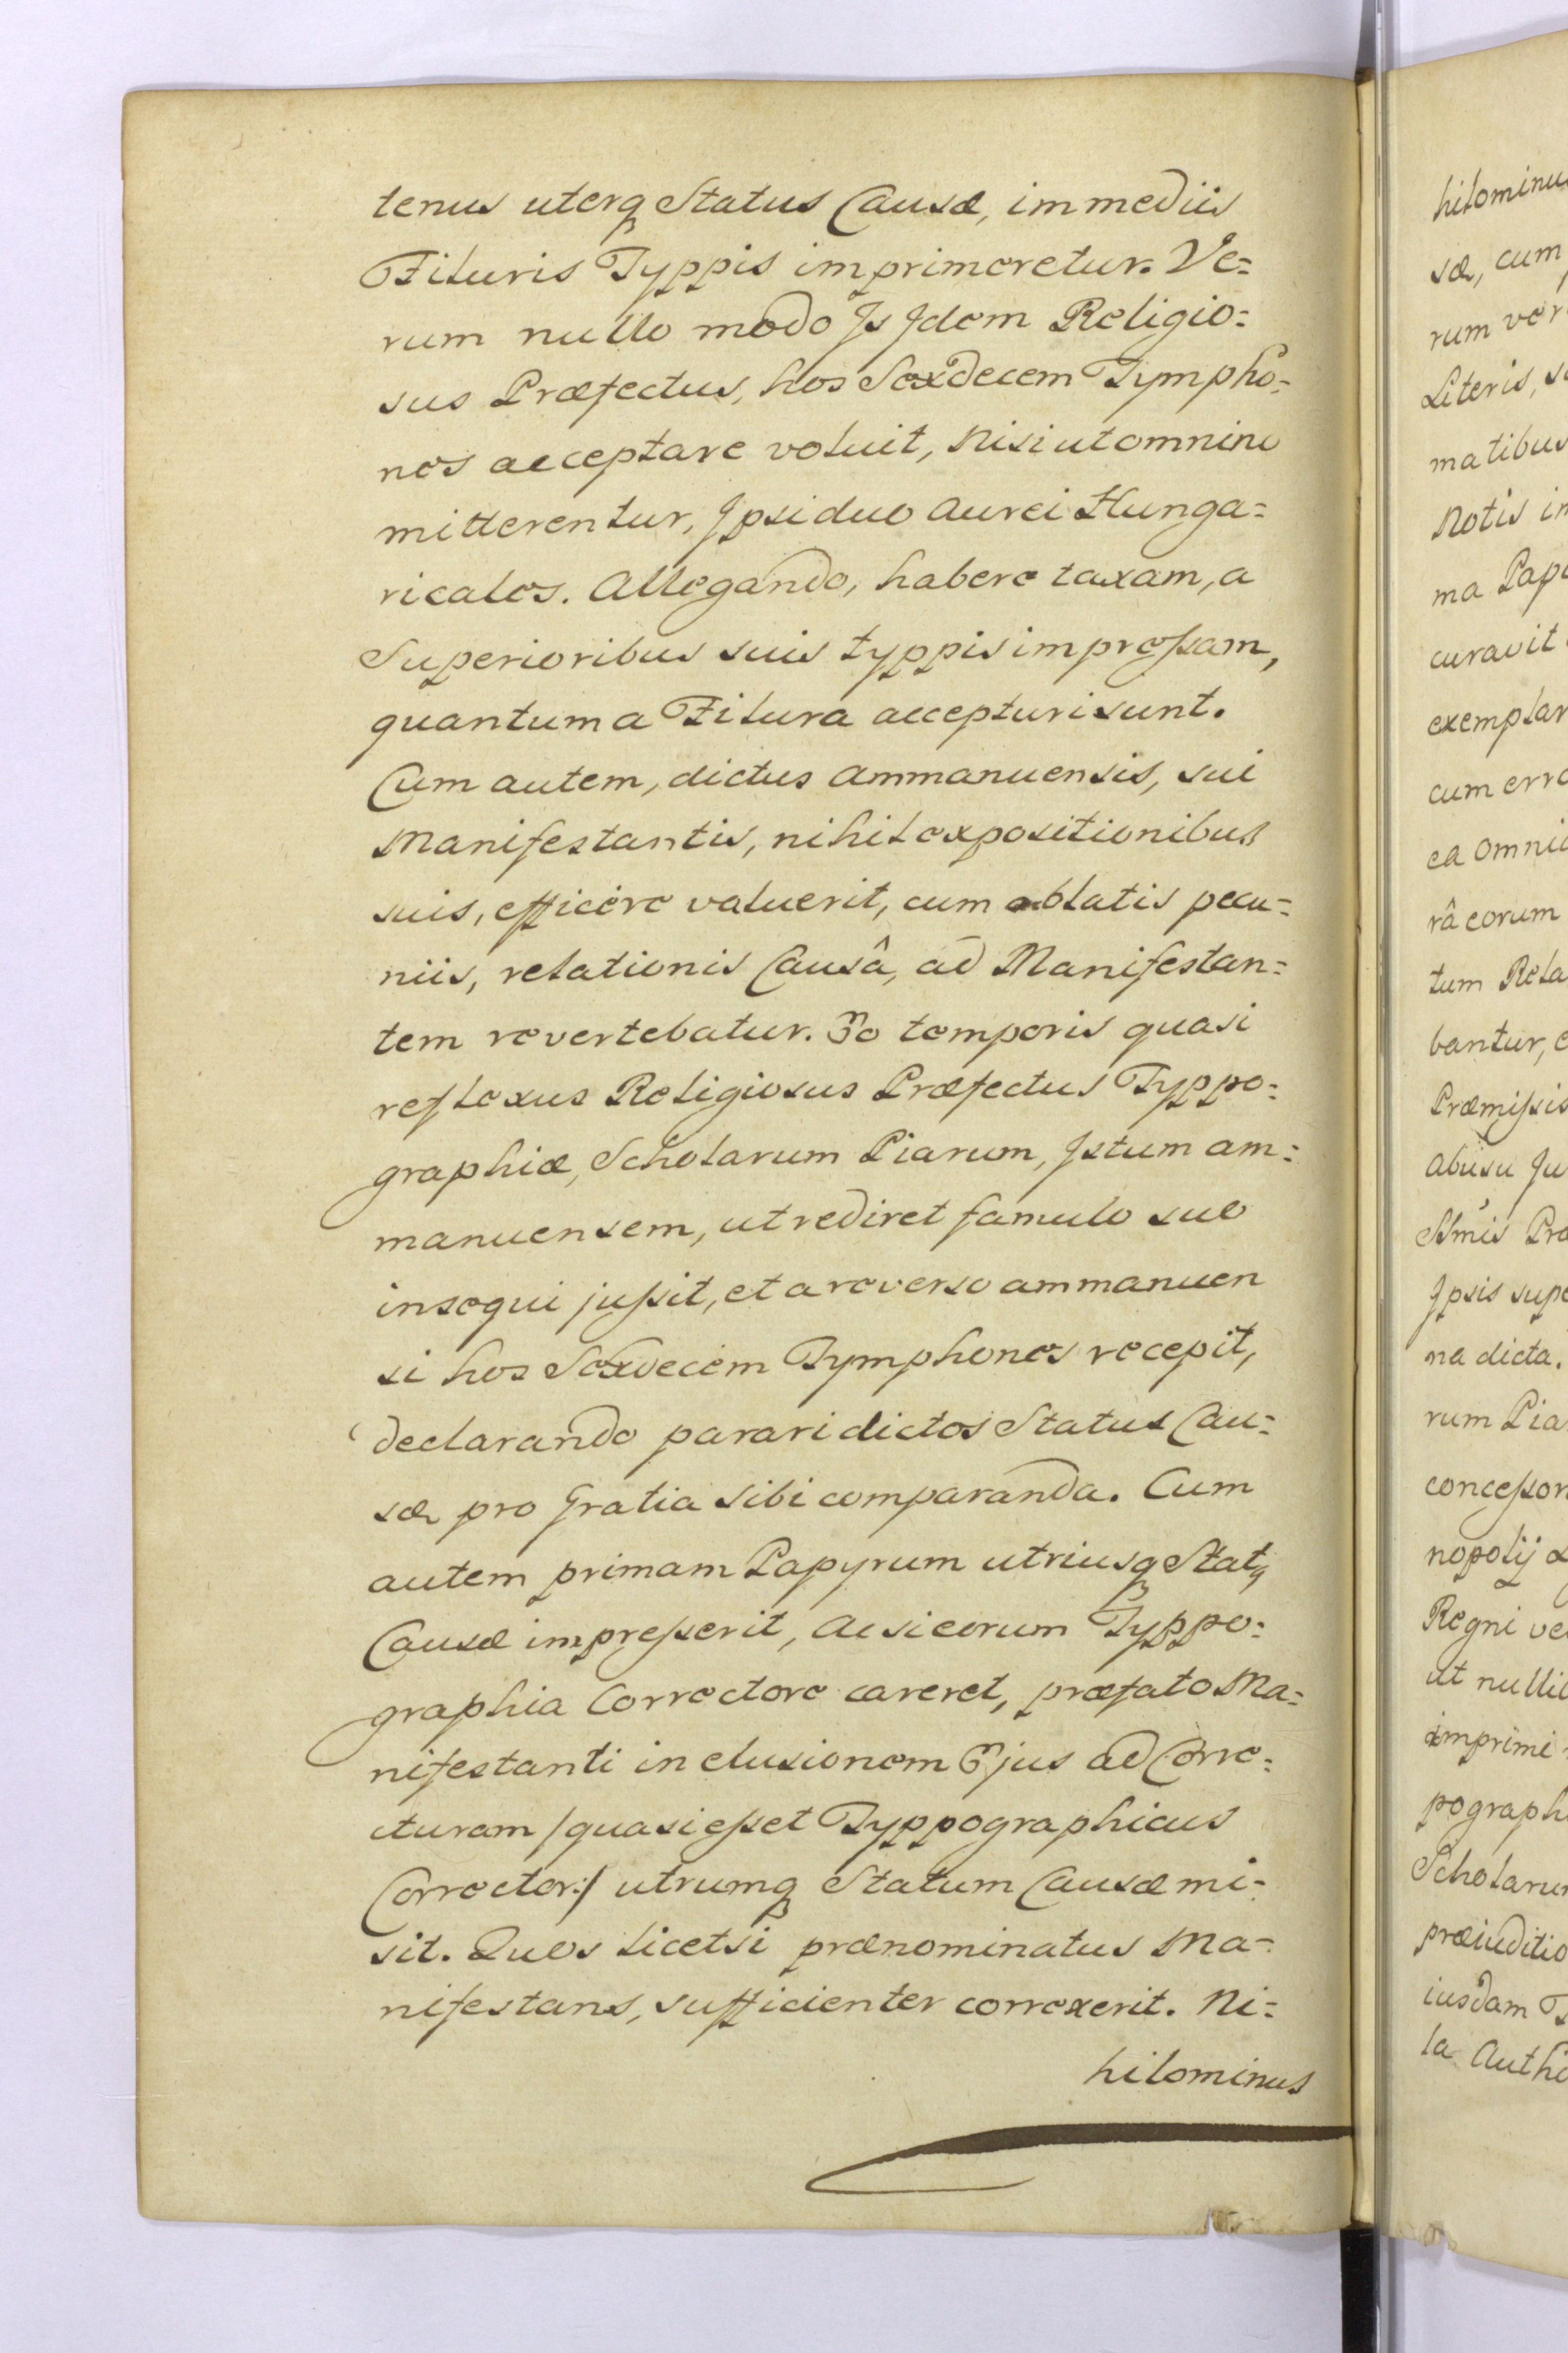 tenus uterq Status Causæ, im mediis
Filuris Typpis imprimeretur. Ve=
rum nullo modo Is Idem Religio=
sus Præfectus, hos Sexdecem Tympho=
nes acceptare voluit, Nisi ut omnino
mitterentur, Ipsi duo Aurei Hunga=
ricales. Allegando, habere taxam, a
Superioribus suis typpis impressam,
quantum a Filura accepturi sunt.
Cum autem, dictus Ammanuensis, sui
Manifestantis, nihil expositionibus
suis, efficere valuerit, cum oblatis pecu=
niis, relationis Causâ, ad Manifestan=
tem revertebatur. Eo temporis quasi
reflexus Religiosus Præfectus Typpo=
graphiæ, Scholarum Piarum, Istum am=
manuensem, ut rediret famulo suo
insequi jussit, et a reverso ammanuen
si hos Sexdecem Tymphones recepit,
declarando parari dictos Status Cau=
sæ pro Gratia sibi comparanda. Cum
autem primam Papyrum utriusq Statq
Causæ impresserit, Ac si eorum Typpo=
graphia Correctore careret, præfato Ma=
nifestanti in elusionem Ejus ad Corre=
cturam /quasi esset Typpographicus
Corrector:/ utrumq Statum Causæ mi=
sit. Quos licetsi prænominatus Ma=
nifestans, sufficienter correxerit. Ni=
hilominus
hilominus
sæ, cum
rum ver
Literis,
matibus
Notis in
ma Papi
curavit
exemplar
cum erro
ea omnia
râ eorum
tum Rela
bantur,
Præmissis
Abusu Ju
Ipsis supe
na dicta.
rum Pia
concesson
nopolij
Regni ve
ut nulli
imprimi
pograph
Scholarum
præiuditio
iusdam
la Autho